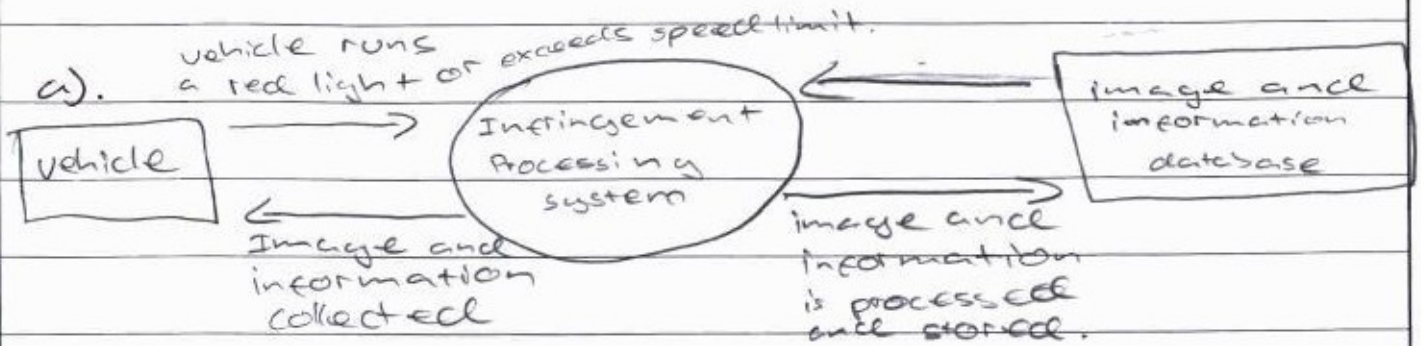 a).
vehicle runs
a red light or exceeds speed limit.
vehicle
Infringement
Processing
system
image and
information
database
Image and
information
collected
image and
information
is processed
and stored.